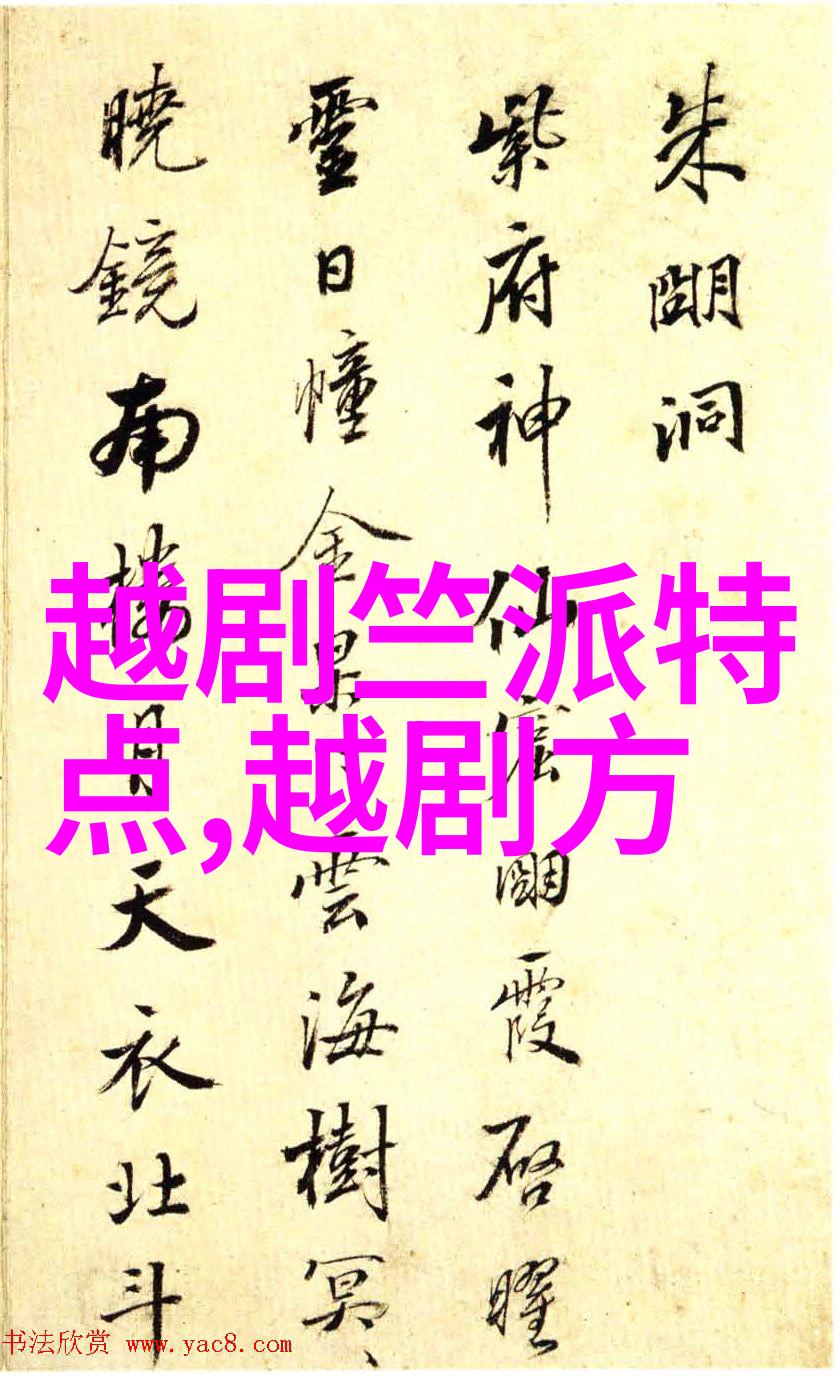 朱朙洞
紫府神仙窟朙霞啓曜
靈日幢金雲海樹冥、
曉鏡南樓月天衣北斗
越剧竺派特
点,越剧方
书法欣赏 www.yac8.com